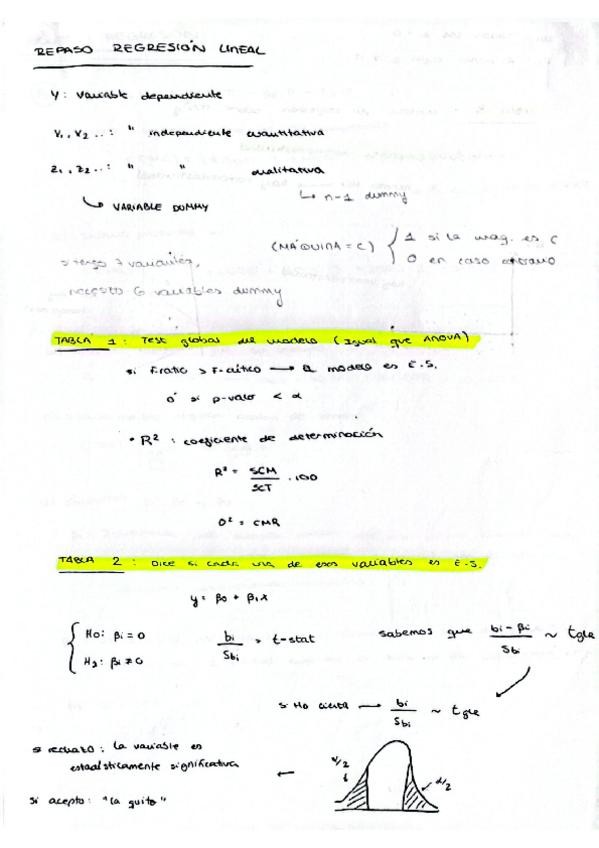 REPASO REGRESIÓN LINEAL
Y: variable dependiente
V1, V2 ..: " independiente cuantitativa
Z1, Z2 ..: " " cualitativa
↳ VARIABLE DUMMY
↳ n-1 dummy
(MÁQUINA = C) { 1 si la maq. es C
0 en caso contrario
si tengo 7 variables,
necesito 6 variables dummy
TABLA 1: Test global del modelo (Igual que ANOVA)
si F-ratio > F-crítico → El modelo es E.S.
ó si p-valor < α
• R² : coeficiente de determinación
R² = SCM/SCT . 100
σ² = CMR
TABLA 2 : Dice si cada una de esas variables es E.S.
y = β0 + β1x
{ H0: βi = 0
H1: βi ≠ 0
bi/Sbi > t-stat
sabemos que (bi - βi)/Sbi ~ tglr
si H0 cierta → bi/Sbi ~ tglr
si rechazo: la variable es
estadísticamente significativa
←
α/2
α/2
si acepto: "la quito"